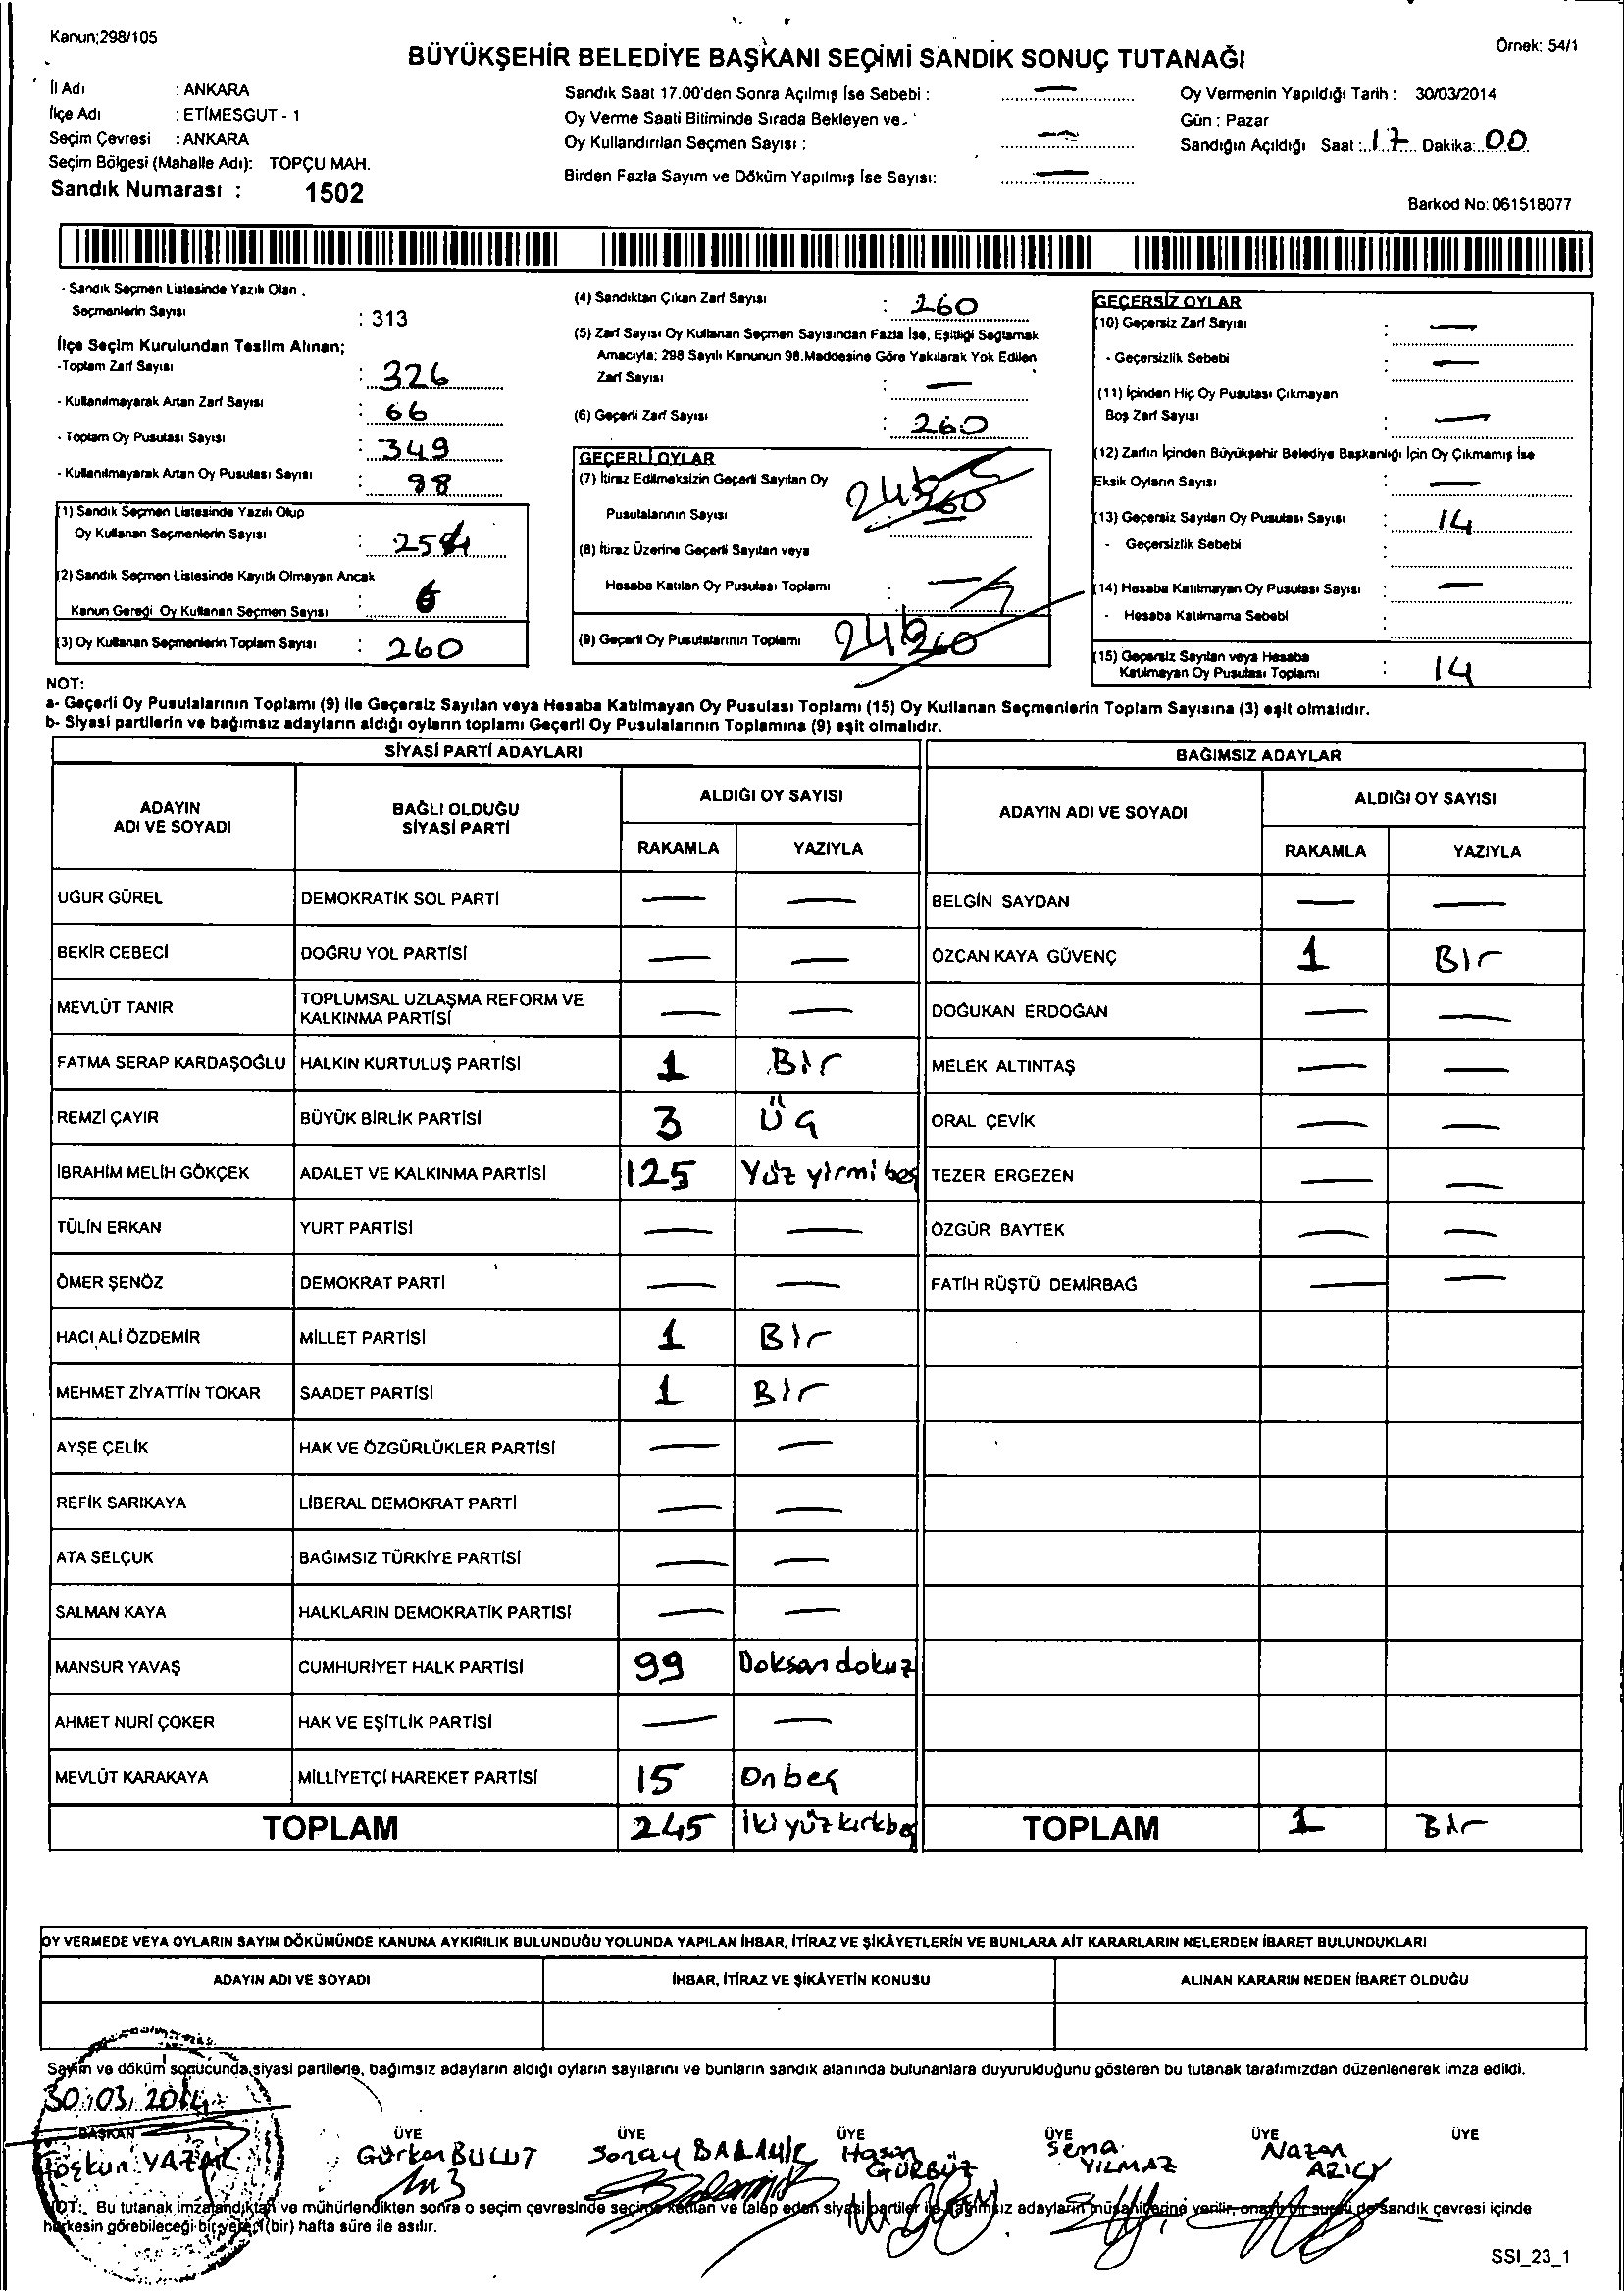 Kanun;298/105
Örnek: 54/1
BÜYÜKŞEHİR BELEDİYE BAŞKANI SEÇİMİ SANDIK SONUÇ TUTANAĞI
İl Adı : ANKARA
İlçe Adı : ETİMESGUT - 1
Seçim Çevresi : ANKARA
Seçim Bölgesi (Mahalle Adı): TOPÇU MAH.
Sandık Numarası : 1502
Sandık Saat 17.00'den Sonra Açılmış İse Sebebi : —
Oy Verme Saati Bitiminde Sırada Bekleyen ve
Oy Kullandırılan Seçmen Sayısı : —
Birden Fazla Sayım ve Döküm Yapılmış İse Sayısı: —
Oy Vermenin Yapıldığı Tarih : 30/03/2014
Gün : Pazar
Sandığın Açıldığı Saat : 17 Dakika: 00
Barkod No: 061518077
- Sandık Seçmen Listesinde Yazılı Olan
Seçmenlerin Sayısı : 313
İlçe Seçim Kurulundan Teslim Alınan;
-Toplam Zarf Sayısı : 326
- Kullanılmayarak Artan Zarf Sayısı : 66
- Toplam Oy Pusulası Sayısı : 349
- Kullanılmayarak Artan Oy Pusulası Sayısı : 98
(1) Sandık Seçmen Listesinde Yazılı Olup
Oy Kullanan Seçmenlerin Sayısı : 254
(2) Sandık Seçmen Listesinde Kayıtlı Olmayan Ancak
Kanun Gereği Oy Kullanan Seçmen Sayısı : 6
(3) Oy Kullanan Seçmenlerin Toplam Sayısı : 260
(4) Sandıktan Çıkan Zarf Sayısı : 260
(5) Zarf Sayısı Oy Kullanan Seçmen Sayısından Fazla İse, Eşitliği Sağlamak
Amacıyla; 298 Sayılı Kanunun 98.Maddesine Göre Yakılarak Yok Edilen
Zarf Sayısı : —
(6) Geçerli Zarf Sayısı : 260
GEÇERLİ OYLAR
(7) İtiraz Edilmeksizin Geçerli Sayılan Oy
Pusulalarının Sayısı 246 260
(8) İtiraz Üzerine Geçerli Sayılan veya
Hesaba Katılan Oy Pusulası Toplamı : —
(9) Geçerli Oy Pusulalarının Toplamı 246 260
GEÇERSİZ OYLAR
(10) Geçersiz Zarf Sayısı : —
- Geçersizlik Sebebi : —
(11) İçinden Hiç Oy Pusulası Çıkmayan
Boş Zarf Sayısı : —
(12) Zarfın İçinden Büyükşehir Belediye Başkanlığı İçin Oy Çıkmamış İse
Eksik Oyların Sayısı : —
(13) Geçersiz Sayılan Oy Pusulası Sayısı : 14
- Geçersizlik Sebebi :
(14) Hesaba Katılmayan Oy Pusulası Sayısı : —
- Hesaba Katılmama Sebebi :
(15) Geçersiz Sayılan veya Hesaba
Katılmayan Oy Pusulası Toplamı : 14
NOT:
a- Geçerli Oy Pusulalarının Toplamı (9) ile Geçersiz Sayılan veya Hesaba Katılmayan Oy Pusulası Toplamı (15) Oy Kullanan Seçmenlerin Toplam Sayısına (3) eşit olmalıdır.
b- Siyasi partilerin ve bağımsız adayların aldığı oyların toplamı Geçerli Oy Pusulalarının Toplamına (9) eşit olmalıdır.
SİYASİ PARTİ ADAYLARI
ADAYIN ADI VE SOYADI
BAĞLI OLDUĞU SİYASİ PARTİ
ALDIĞI OY SAYISI
RAKAMLA YAZIYLA
UĞUR GÜREL DEMOKRATİK SOL PARTİ — —
BEKİR CEBECİ DOĞRU YOL PARTİSİ — —
MEVLÜT TANIR TOPLUMSAL UZLAŞMA REFORM VE KALKINMA PARTİSİ — —
FATMA SERAP KARDAŞOĞLU HALKIN KURTULUŞ PARTİSİ 1 Bir
REMZİ ÇAYIR BÜYÜK BİRLİK PARTİSİ 3 Üç
İBRAHİM MELİH GÖKÇEK ADALET VE KALKINMA PARTİSİ 125 Yüz yirmi beş
TÜLİN ERKAN YURT PARTİSİ — —
ÖMER ŞENÖZ DEMOKRAT PARTİ — —
HACI ALİ ÖZDEMİR MİLLET PARTİSİ 1 Bir
MEHMET ZİYATTİN TOKAR SAADET PARTİSİ 1 Bir
AYŞE ÇELİK HAK VE ÖZGÜRLÜKLER PARTİSİ — —
REFİK SARIKAYA LİBERAL DEMOKRAT PARTİ — —
ATA SELÇUK BAĞIMSIZ TÜRKİYE PARTİSİ — —
SALMAN KAYA HALKLARIN DEMOKRATİK PARTİSİ — —
MANSUR YAVAŞ CUMHURİYET HALK PARTİSİ 99 Doksan dokuz
AHMET NURİ ÇOKER HAK VE EŞİTLİK PARTİSİ — —
MEVLÜT KARAKAYA MİLLİYETÇİ HAREKET PARTİSİ 15 Onbeş
TOPLAM 245 İkiyüzkırkbeş
BAĞIMSIZ ADAYLAR
ADAYIN ADI VE SOYADI
ALDIĞI OY SAYISI
RAKAMLA YAZIYLA
BELGİN SAYDAN — —
ÖZCAN KAYA GÜVENÇ 1 Bir
DOĞUKAN ERDOĞAN — —
MELEK ALTINTAŞ — —
ORAL ÇEVİK — —
TEZER ERGEZEN — —
ÖZGÜR BAYTEK — —
FATİH RÜŞTÜ DEMİRBAĞ — —
TOPLAM 1 Bir
OY VERMEDE VEYA OYLARIN SAYIM DÖKÜMÜNDE KANUNA AYKIRILIK BULUNDUĞU YOLUNDA YAPILAN İHBAR, İTİRAZ VE ŞİKÂYETLERİN VE BUNLARA AİT KARARLARIN NELERDEN İBARET BULUNDUKLARI
ADAYIN ADI VE SOYADI
İHBAR, İTİRAZ VE ŞİKÂYETİN KONUSU
ALINAN KARARIN NEDEN İBARET OLDUĞU
Sayım ve döküm sonucunda, siyasi partilerle, bağımsız adayların aldığı oyların sayılarını ve bunların sandık alanında bulunanlara duyurulduğunu gösteren bu tutanak tarafımızdan düzenlenerek imza edildi.
30.03.2014
BAŞKAN ÜYE ÜYE ÜYE ÜYE ÜYE ÜYE
Coşkun YAZAR
Gürkan BULUT
Hasan GÜRBÜZ
Sema YILMAZ
Nazan
NOT: Bu tutanak imzalandıktan ve mühürlendikten sonra o seçim çevresinde seçime katılan ve talep eden siyasi partiler ile bağımsız adayların müşahitlerine verilir, onaylı bir sureti de sandık çevresi içinde
herkesin görebileceği bir yere 1 (bir) hafta süre ile asılır.
SSI_23_1